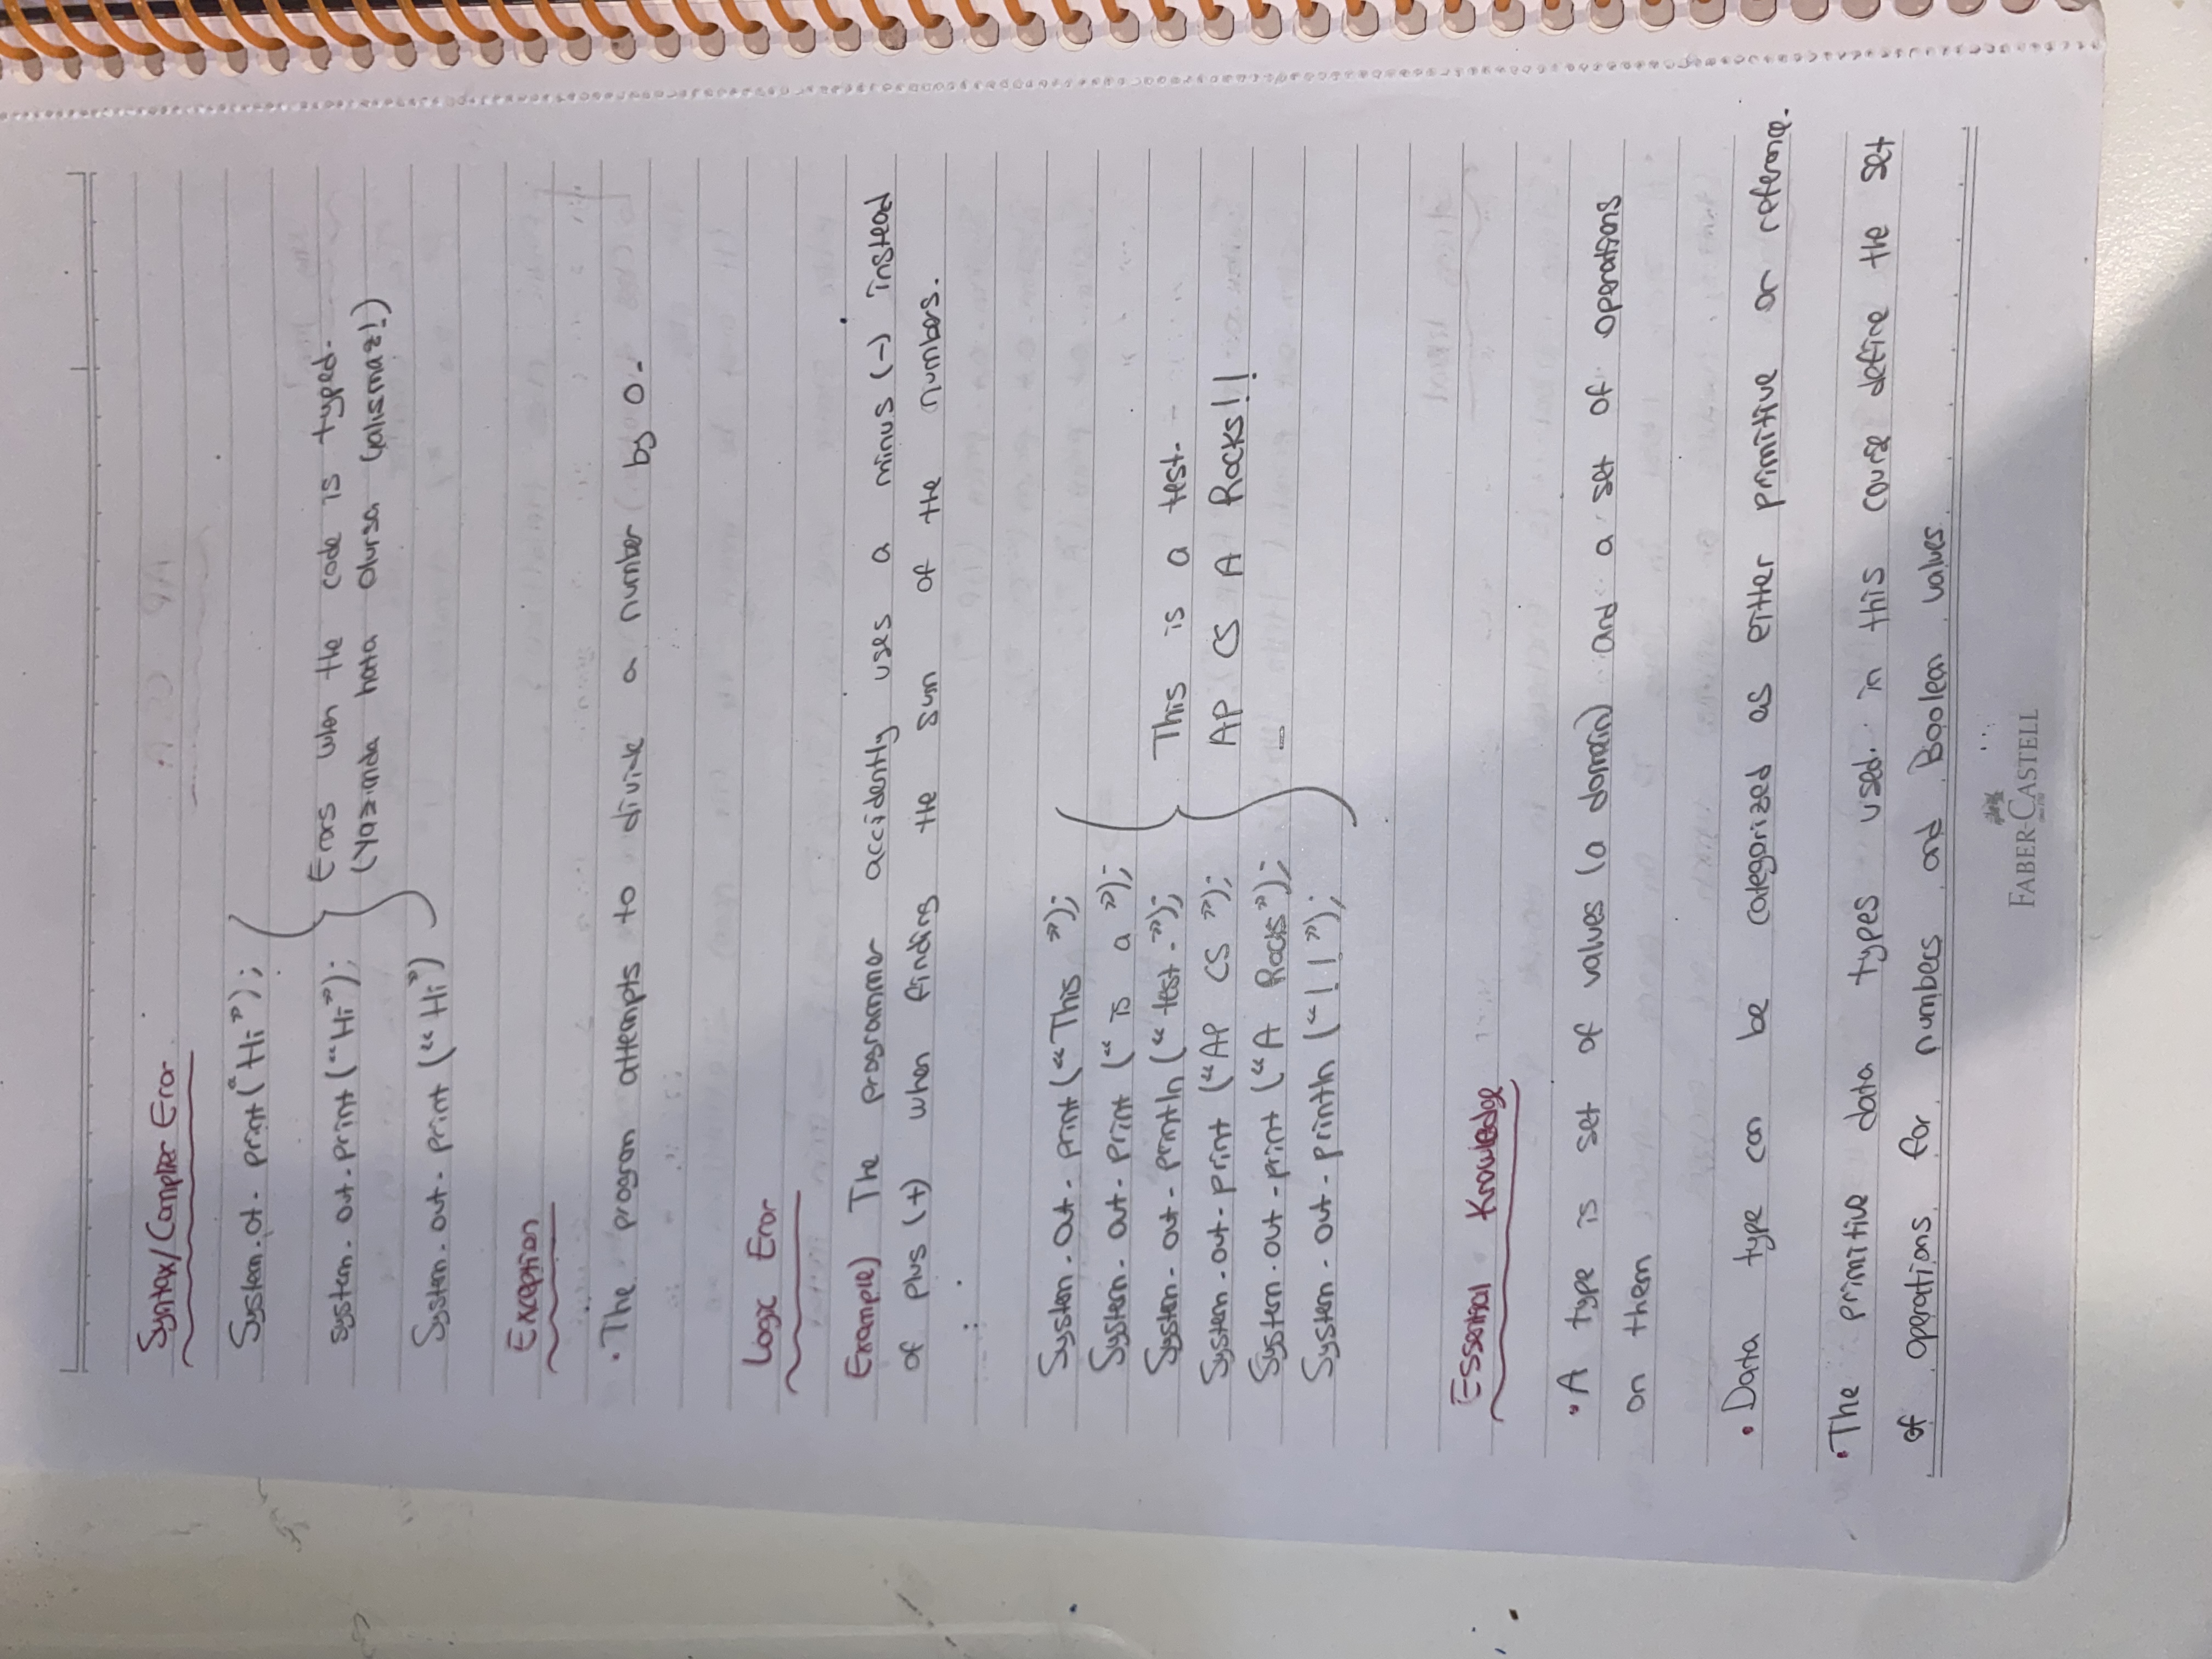 Syntax/Complier Eror
System.ot. print("Hi");
system. out.print ("Hi");
Erors when the code is typed.
(Yazımda hata olursa çalışmaz!)
System.out. print ("Hi")
Exception
• The program attempts to divide a number by 0.
Logic Eror
Example) The programmer accidently uses a minus (-) instead
of plus (+) when finding the sum of the numbers.
System.out. print ("This ");
System. out.print (" is a ");
System. out. println (" test.");
System.out.print ("AP CS ");
System.out.print ("A Rocks");
System. out. println ("!!");
This is a test.
AP CS A Rocks!!
_
Essential Knowledge
• A type is set of values (a domain) and a set of operations
on them
• Data type can be categorized as either primitive or reference.
• The primitive data types used in this course define the set
of operations for numbers and Boolean values.
FABER-CASTELL